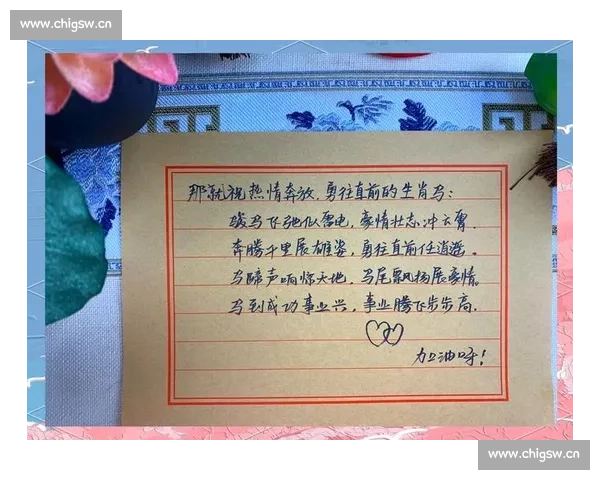 www.chigsw.cn
那就祝热情奔放，勇往直前的生肖马：
骏马飞驰似雷电，豪情壮志冲云霄.
奔腾千里展雄姿，勇往直前任逍遥.
马蹄声响惊天地，马尾飘扬展豪情。
马到成功事业兴，事业腾飞步步高.
加油呀！
www.chigsw.cn